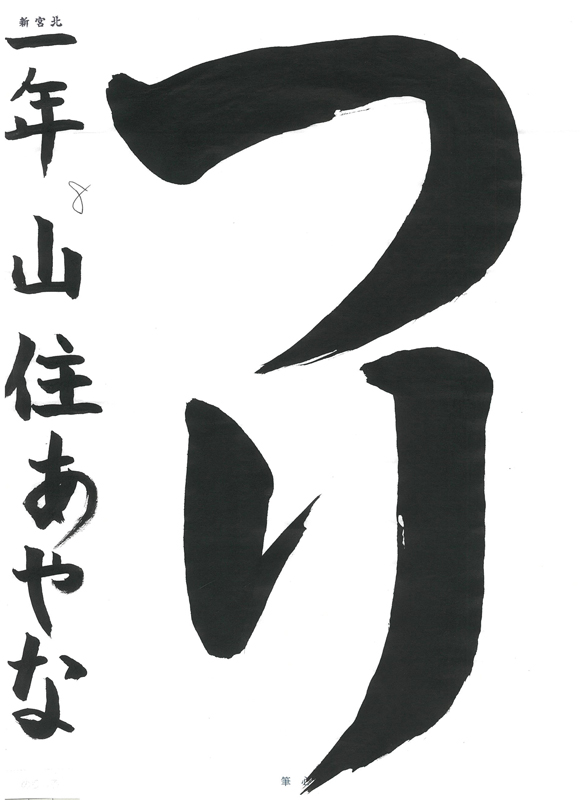 つり
新宮北
一年 山住あやな
8